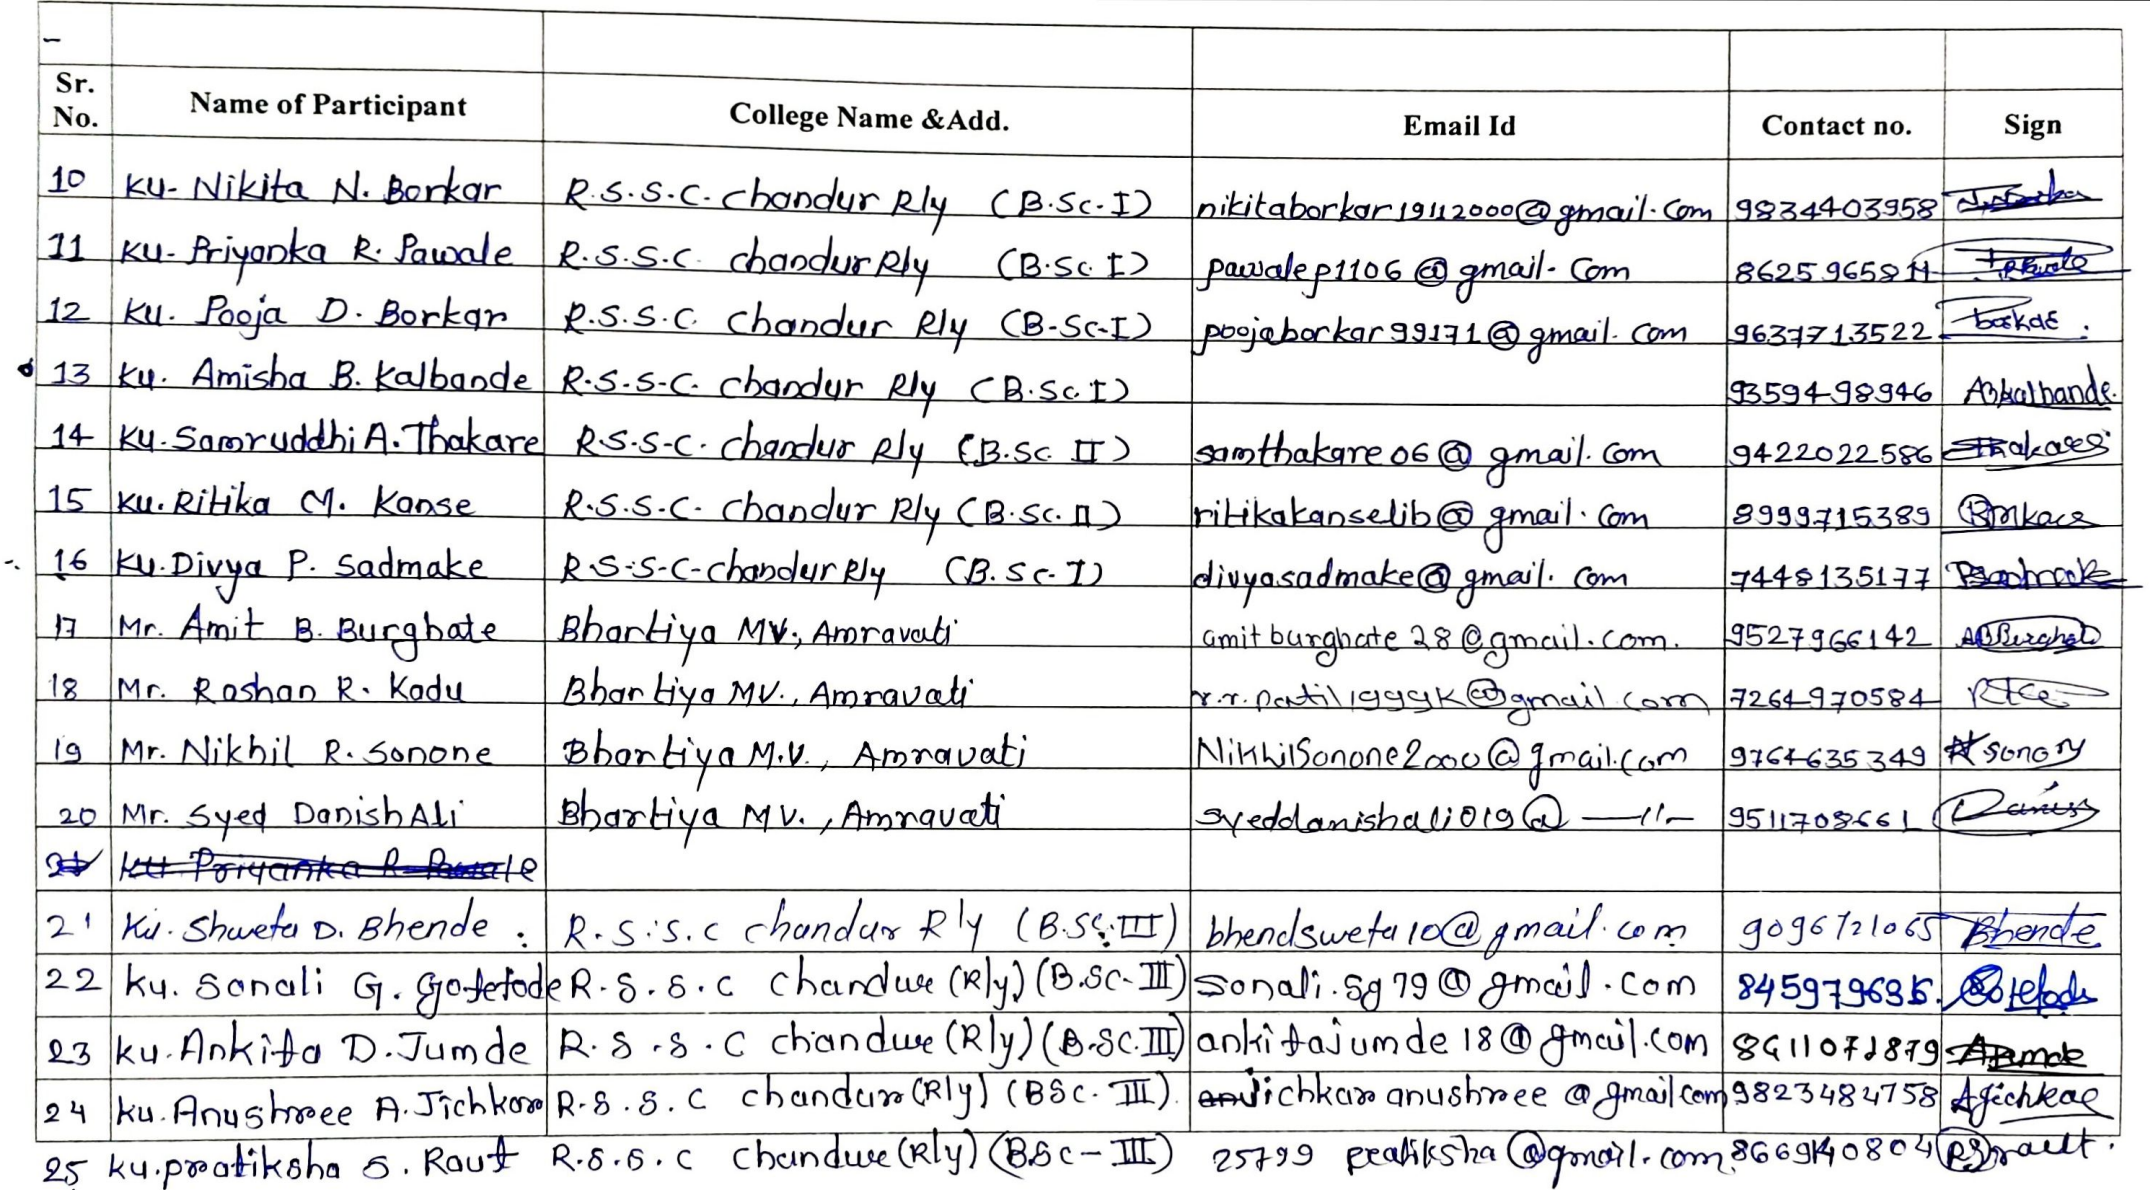 Sr. No. Name of Participant College Name &Add. Email Id Contact no. Sign
10 Ku- Nikita N. Borkar R.S.S.C. chandur Rly (B.Sc.I) nikitaborkar19112000@gmail.com 9834403958
11 Ku- Priyanka R. Pawale R.S.S.C. chandur Rly (B.Sc.I) pawalep1106@gmail.com 8625965811
12 Ku. Pooja D. Borkar R.S.S.C. Chandur Rly (B-Sc-I) poojaborkar99171@gmail.com 9637713522
13 Ku. Amisha B. Kalbande R.S.S.C. chandur Rly (B.Sc.I) 9359498946 ABkalbande.
14 Ku. Samruddhi A. Thakare R.S.S-C. chandur Rly (B.Sc II) samthakare06@gmail.com 9422022586
15 Ku. Ritika M. Kanse R.S.S.C. chandur Rly (B.Sc.II) ritikakanselib@gmail.com 8999715389
16 Ku. Divya P. Sadmake R.S.S-C-chandur Rly (B.Sc.I) divyasadmake@gmail.com 7448135177
17 Mr. Amit B. Burghate Bhartiya MV., Amravati amitburghate28@gmail.com. 9527966142 ABBurghate
18 Mr. Roshan R. Kadu Bhartiya MV., Amravati r.r.patil1999k@gmail.com 7264970584
19 Mr. Nikhil R. Sonone Bhartiya M.V., Amravati NikhilSonone2000@gmail.com 9764635349
20 Mr. Syed Danish Ali Bhartiya MV., Amravati syeddanishali019@ —11— 9511708661 Danish
21 Ku Priyanka R Pawale
21 Ku. Shweta D. Bhende R.S.S.C chandur Rly (B.Sc.III) bhendsweta10@gmail.com 9096721065 Bhende
22 Ku. Sonali G. Gotefode R.S.S.C chandur (Rly) (B.Sc-III) sonali.sg79@gmail.com Gotefode
23 Ku. Ankita D. Jumde R.S.S.C chandur (Rly) (B.Sc.III) ankitajumde18@gmail.com
24 Ku. Anushree A. Jichkar R.S.S.C chandur (Rly) (BSc. III) jichkaranushree@gmail.com 9823484758 Ajichkar
25 Ku. pratiksha S. Raut R.S.S.C chandur (Rly) (BSc-III) 25799pratiksha@gmail.com